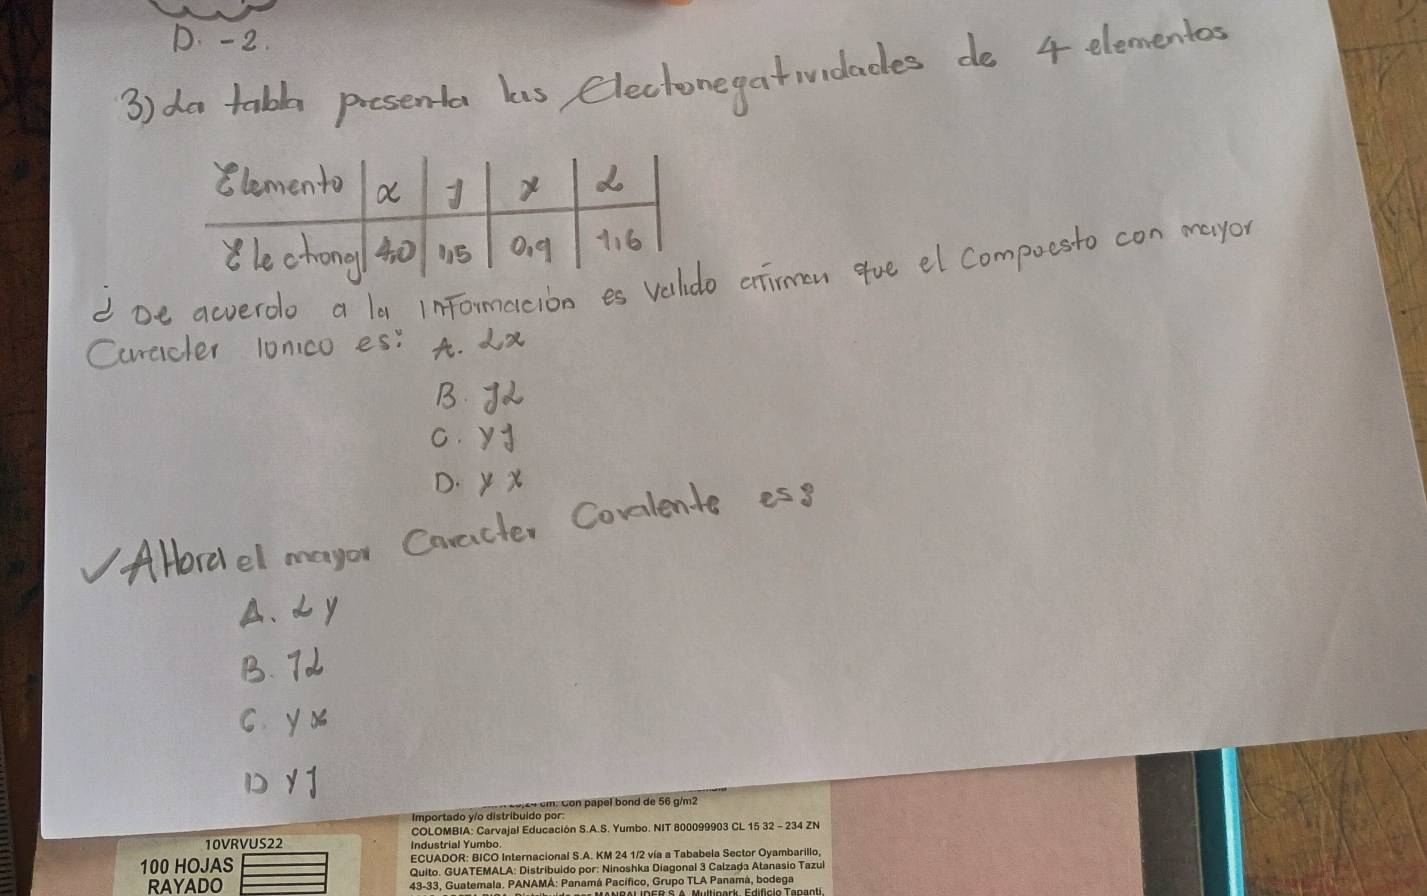 D. -2.
3) La tabla presenta las Electonegatividades de 4 elementos
Elemento | x | J | Y | L |
Electroneg | 4,0 | 1,5 | 0,9 | 1,6 |
¿ De acuerdo a la informacion es valido afirman que el Compuesto con mayor
Caracter ionico es: A. Lx
B. JL
C. YJ
D. Y X
✓ AHora el mayor Caracter Covalente es:
A. L Y
B. JL
C. Y X
D YJ
cm. Con papel bond de 56 g/m2
Importado y/o distribuido por:
COLOMBIA: Carvajal Educación S.A.S. Yumbo. NIT 800099903 CL 15 32 - 234 ZN
Industrial Yumbo.
ECUADOR: BICO Internacional S.A. KM 24 1/2 vía a Tababela Sector Oyambarillo,
Quito. GUATEMALA: Distribuido por: Ninoshka Diagonal 3 Calzada Atanasio Tazul
43-33, Guatemala. PANAMÁ: Panamá Pacífico, Grupo TLA Panamá, bodega
S.A. Multipark, Edificio Tapantí,
10VRVUS22
100 HOJAS
RAYADO